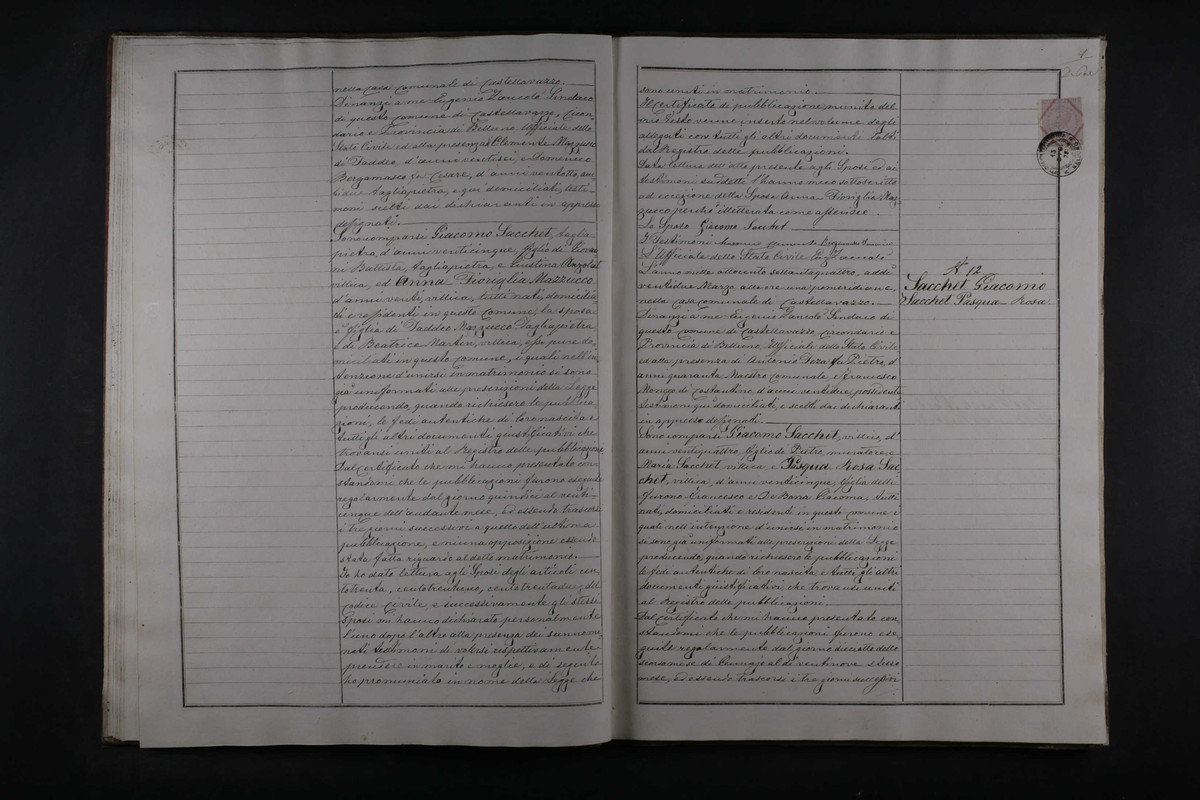 nella casa comunale di Castellavazzo.
Dinanzi a me Eugenio Zancolò Sindaco
di questo comune di Castellavazzo, Circon-
dario e Provincia di Belluno Uffiziale dello
Stato Civile ed alla presenza di Clemente Mazzucco
di Taddeo, d'anni ventisei, e Domenico
Bergamasco fu Cesare, d'anni ventotto, am-
bidue tagliapietra, e qui domiciliati, testi-
moni scelti dai dichiaranti in appresso
designati.
Sono comparsi Giacomo Sacchet, taglia-
pietra, d'anni venticinque, figlio di Giovan-
ni Battista, tagliapietra, e Giustina
villica, ed Anna Fioriglia Mazzucco
d'anni venti, villica, tutti nati, domicilia-
ti e residenti in questo comune, la sposa
è figlia di Taddeo Mazzucco Tagliapietra
e di Beatrice Martin, villica, essi pure do-
miciliati in questo comune, i quali nell'in-
tenzione d'unirsi in matrimonio si sono
già uniformati alle prescrizioni della Legge
producendo, quando richiesero le pubblica-
zioni, le fedi autentiche di loro nascita e
tutti gli altri documenti giustificativi che
trovansi uniti al Registro delle pubblicazioni.
Dal certificato che mi hanno presentato con-
standomi che le pubblicazioni furono eseguite
regolarmente dal giorno quindici al venti-
cinque dell'andante mese, ed essendo trascorsi
i tre giorni successivi a quello dell'ultima
pubblicazione, e niuna opposizione essendo
stata fatta riguardo al detto matrimonio.
Io ho dato lettura agli Sposi degli articoli cen-
totrenta, centotrentuno, centotrentadue, del
codice Civile, e successivamente gli stessi
Sposi mi hanno dichiarato personalmente
l'uno dopo l'altro alla presenza dei sunnomi-
nati testimoni di volersi rispettivamente
prendere in marito e moglie, e di seguito
ho pronunciato in nome della Legge che
sono uniti in matrimonio.
Il certificato di pubblicazione, munito del
mio Visto venne inserto nel volume degli
allegati con tutti gli altri documenti
dal Registro delle pubblicazioni.
Data lettura dell'atto presente agli Sposi ed ai
testimoni suddetti l'hanno meco sottoscritto
ad eccezione della Sposa Anna Fioriglia Maz-
zucco perché illetterata come asserisce.
Lo Sposo Giacomo Sacchet
I Testimoni Bergamasco
L'Uffiziale dello Stato Civile E. Zancolò
L'anno mille ottocento settantaquattro, addì
ventidue Marzo, alle ore una pomeridiane,
nella casa comunale di Castellavazzo.
Dinanzi a me Eugenio Zancolò Sindaco di
questo comune di Castellavazzo circondario e
Provincia di Belluno, Uffiziale dello Stato Civile
ed alla presenza di Antonio fu Pietro, d'
anni quaranta Maestro comunale e Francesco
di Costantino, d'anni ventidue, possidente
testimoni qui domiciliati, e scelti dai dichiaranti
in appresso designati.
Sono comparsi Giacomo Sacchet, villico, d'
anni ventiquattro, figlio di Pietro, muratore, e
Maria Sacchet villica e Pasqua Rosa Sac-
chet, villica, d'anni venticinque, figlia delli
furono Francesco e De Bona Giacoma, tutti
nati, domiciliati e residenti in questo comune i
quali nell'intenzione d'unirsi in matrimonio
si sono già uniformati alle prescrizioni della Legge
producendo, quando richiesero le pubblicazioni
le fedi autentiche di loro nascita, e tutti gli altri
documenti giustificativi che trovansi uniti
al Registro delle pubblicazioni.
Dal certificato che mi hanno presentato con-
standomi che le pubblicazioni furono ese-
guite regolarmente dal giorno diciotto dello
scorso mese di Gennajo al dì ventinove stesso
mese, ed essendo trascorsi i tre giorni successivi
N. 12
Sacchet Giacomo
Sacchet Pasqua Rosa